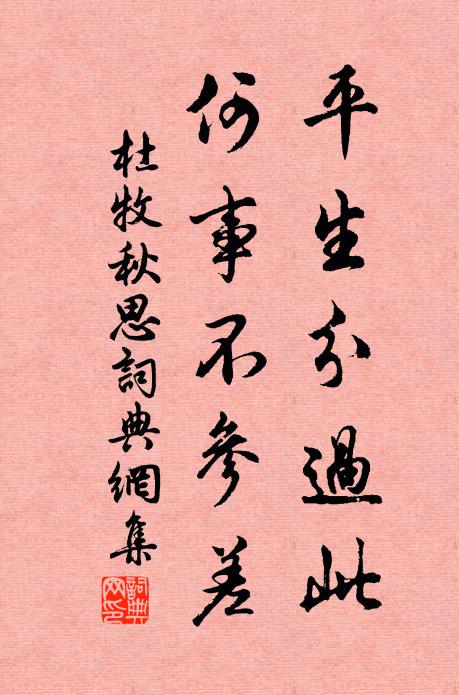 平生分過此
何事不參差
杜牧秋思詞典網集
詞典网印